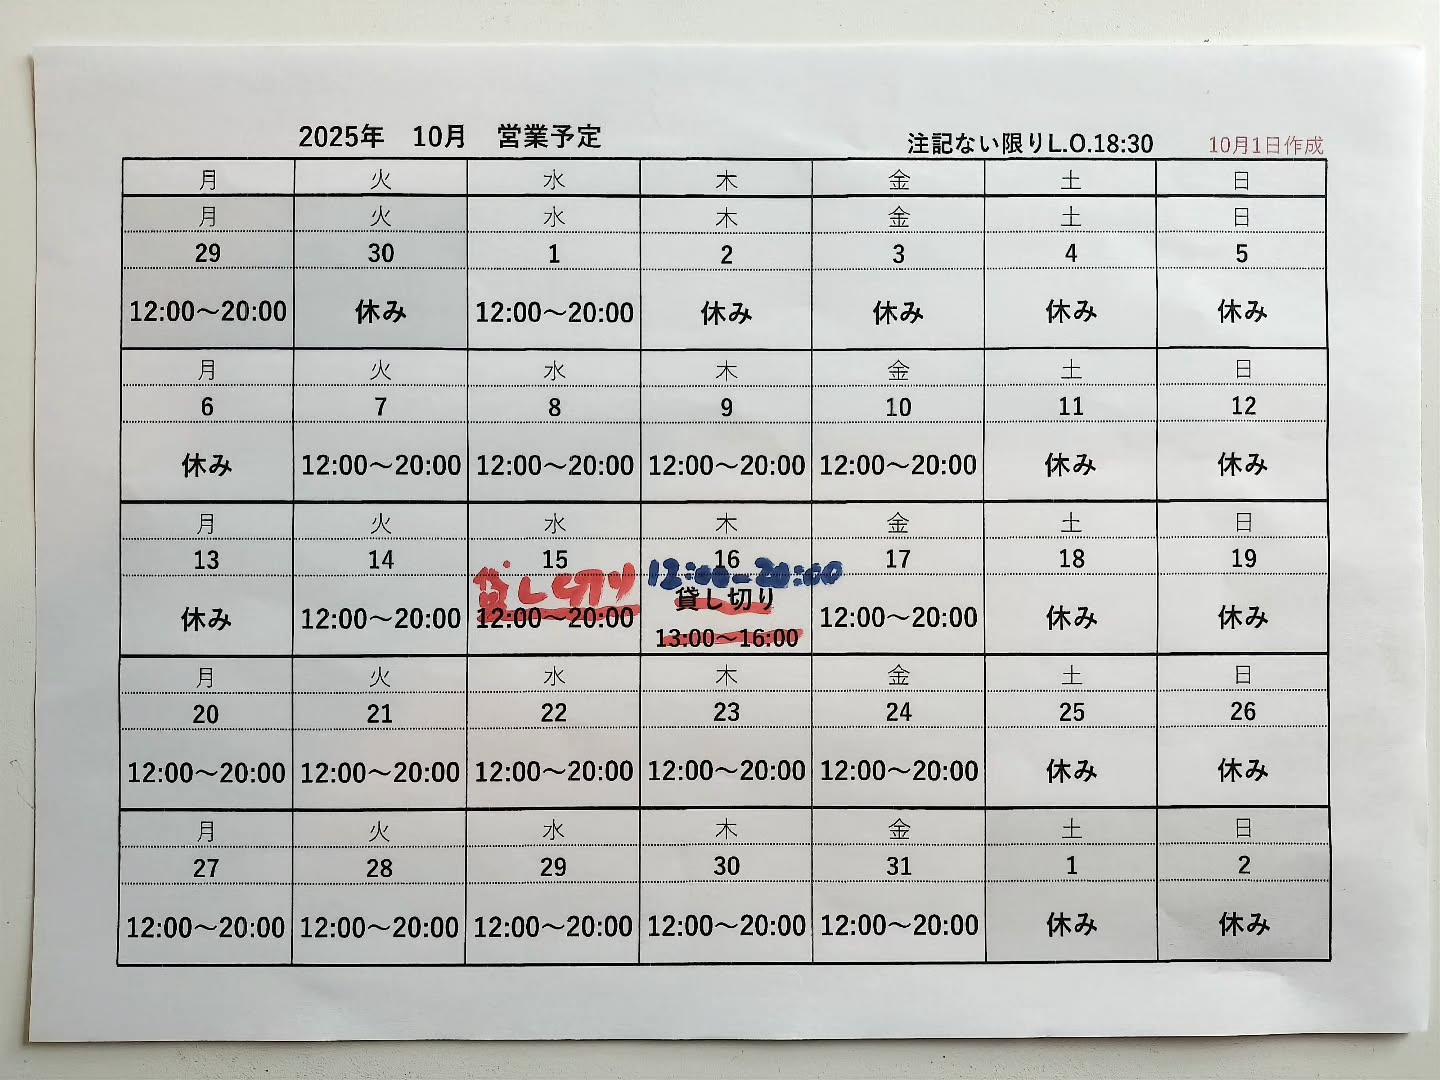 2025年　10月　営業予定
注記ない限りL.O.18:30 10月1日作成
月 火 水 木 金 土 日
月 火 水 木 金 土 日
29 30 1 2 3 4 5
12:00～20:00 休み 12:00～20:00 休み 休み 休み 休み
月 火 水 木 金 土 日
6 7 8 9 10 11 12
休み 12:00～20:00 12:00～20:00 12:00～20:00 12:00～20:00 休み 休み
月 火 水 木 金 土 日
13 14 15 16 17 18 19
貸し切り 12:00-20:00
貸し切り
休み 12:00～20:00 12:00～20:00 12:00～20:00 休み 休み
13:00～16:00
月 火 水 木 金 土 日
20 21 22 23 24 25 26
12:00～20:00 12:00～20:00 12:00～20:00 12:00～20:00 12:00～20:00 休み 休み
月 火 水 木 金 土 日
27 28 29 30 31 1 2
12:00～20:00 12:00～20:00 12:00～20:00 12:00～20:00 12:00～20:00 休み 休み